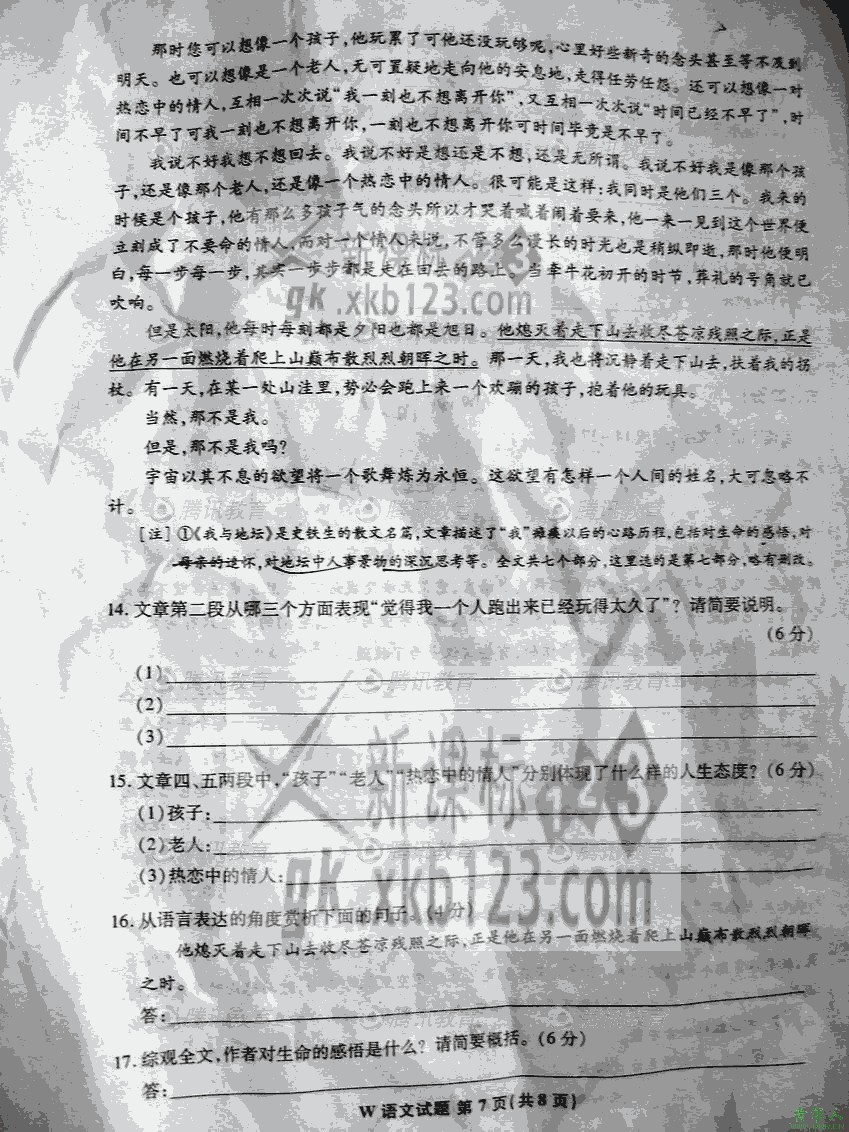 那时您可以想像一个孩子,他玩累了可他还没玩够呢,心里好些新奇的念头甚至等不及到
明天。也可以想像是一个老人,无可置疑地走向他的安息地,走得任劳任怨。还可以想像一对
热恋中的情人,互相一次次说“我一刻也不想离开你”,又互相一次次说“时间已经不早了”,时
间不早了可我一刻也不想离开你,一刻也不想离开你可时间毕竟是不早了。
我说不好我想不想回去。我说不好是想还是不想,还是无所谓。我说不好我是像那个孩
子,还是像那个老人,还是像一个热恋中的情人。很可能是这样:我同时是他们三个。我来的
时候是个孩子,他有那么多孩子气的念头所以才哭着喊着闹着要来,他一来一见到这个世界便
立刻成了不要命的情人,而对一个情人来说,不管多么漫长的时光也是稍纵即逝,那时他便明
白,每一步每一步,其实一步步都是走在回去的路上。当牵牛花初开的时节,葬礼的号角就已
吹响。
但是太阳,他每时每刻都是夕阳也都是旭日。他熄灭着走下山去收尽苍凉残照之际,正是
他在另一面燃烧着爬上山巅布散烈烈朝晖之时。那一天,我也将沉静着走下山去,扶着我的拐
杖。有一天,在某一处山洼里,势必会跑上来一个欢蹦的孩子,抱着他的玩具。
当然,那不是我。
但是,那不是我吗?
宇宙以其不息的欲望将一个歌舞炼为永恒。这欲望有怎样一个人间的姓名,大可忽略不
计。
[注]①《我与地坛》是史铁生的散文名篇,文章描述了“我”瘫痪以后的心路历程,包括对生命的感悟,对
母亲的追怀,对地坛中人事景物的深沉思考等。全文共七个部分,这里选的是第七部分,略有删改。
14. 文章第二段从哪三个方面表现“觉得我一个人跑出来已经玩得太久了”?请简要说明。
(6分)
(1)
(2)
(3)
15. 文章四、五两段中,“孩子”“老人”“热恋中的情人”分别体现了什么样的人生态度?(6分)
(1)孩子:
(2)老人:
(3)热恋中的情人:
16. 从语言表达的角度赏析下面的句子。(4分)
他熄灭着走下山去收尽苍凉残照之际,正是他在另一面燃烧着爬上山巅布散烈烈朝晖
之时。
答:
17. 综观全文,作者对生命的感悟是什么?请简要概括。(6分)
答:
W 语文试题 第7页(共8页)
新课标
123
gk.xkb123.com
腾讯教育